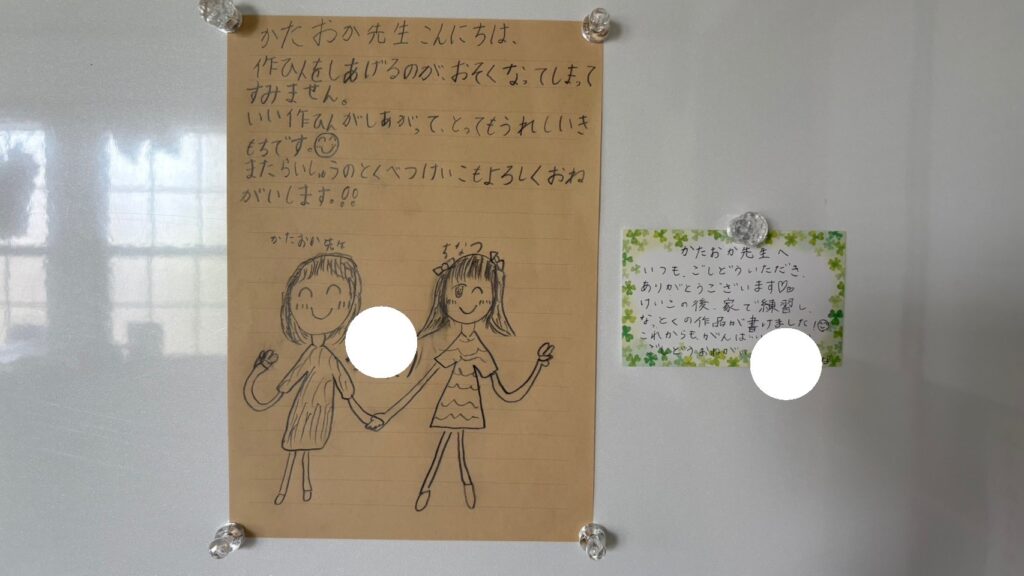 かたおか先生こんにちは、
作ひんをしあげるのが、おそくなってしまって
すみません。
いい作ひんがしあがって、とってもうれしいき
もちです。
またらいしゅうのとくべつけいこもよろしくおね
がいします。!!
かたおか先生
ちなつ
かたおか先生へ
いつも、ごしどういただき、
ありがとうございます♡
けいこの後、家で練習し、
なっとくの作品が書けました!
これからも、がんば
ごしどうおねが